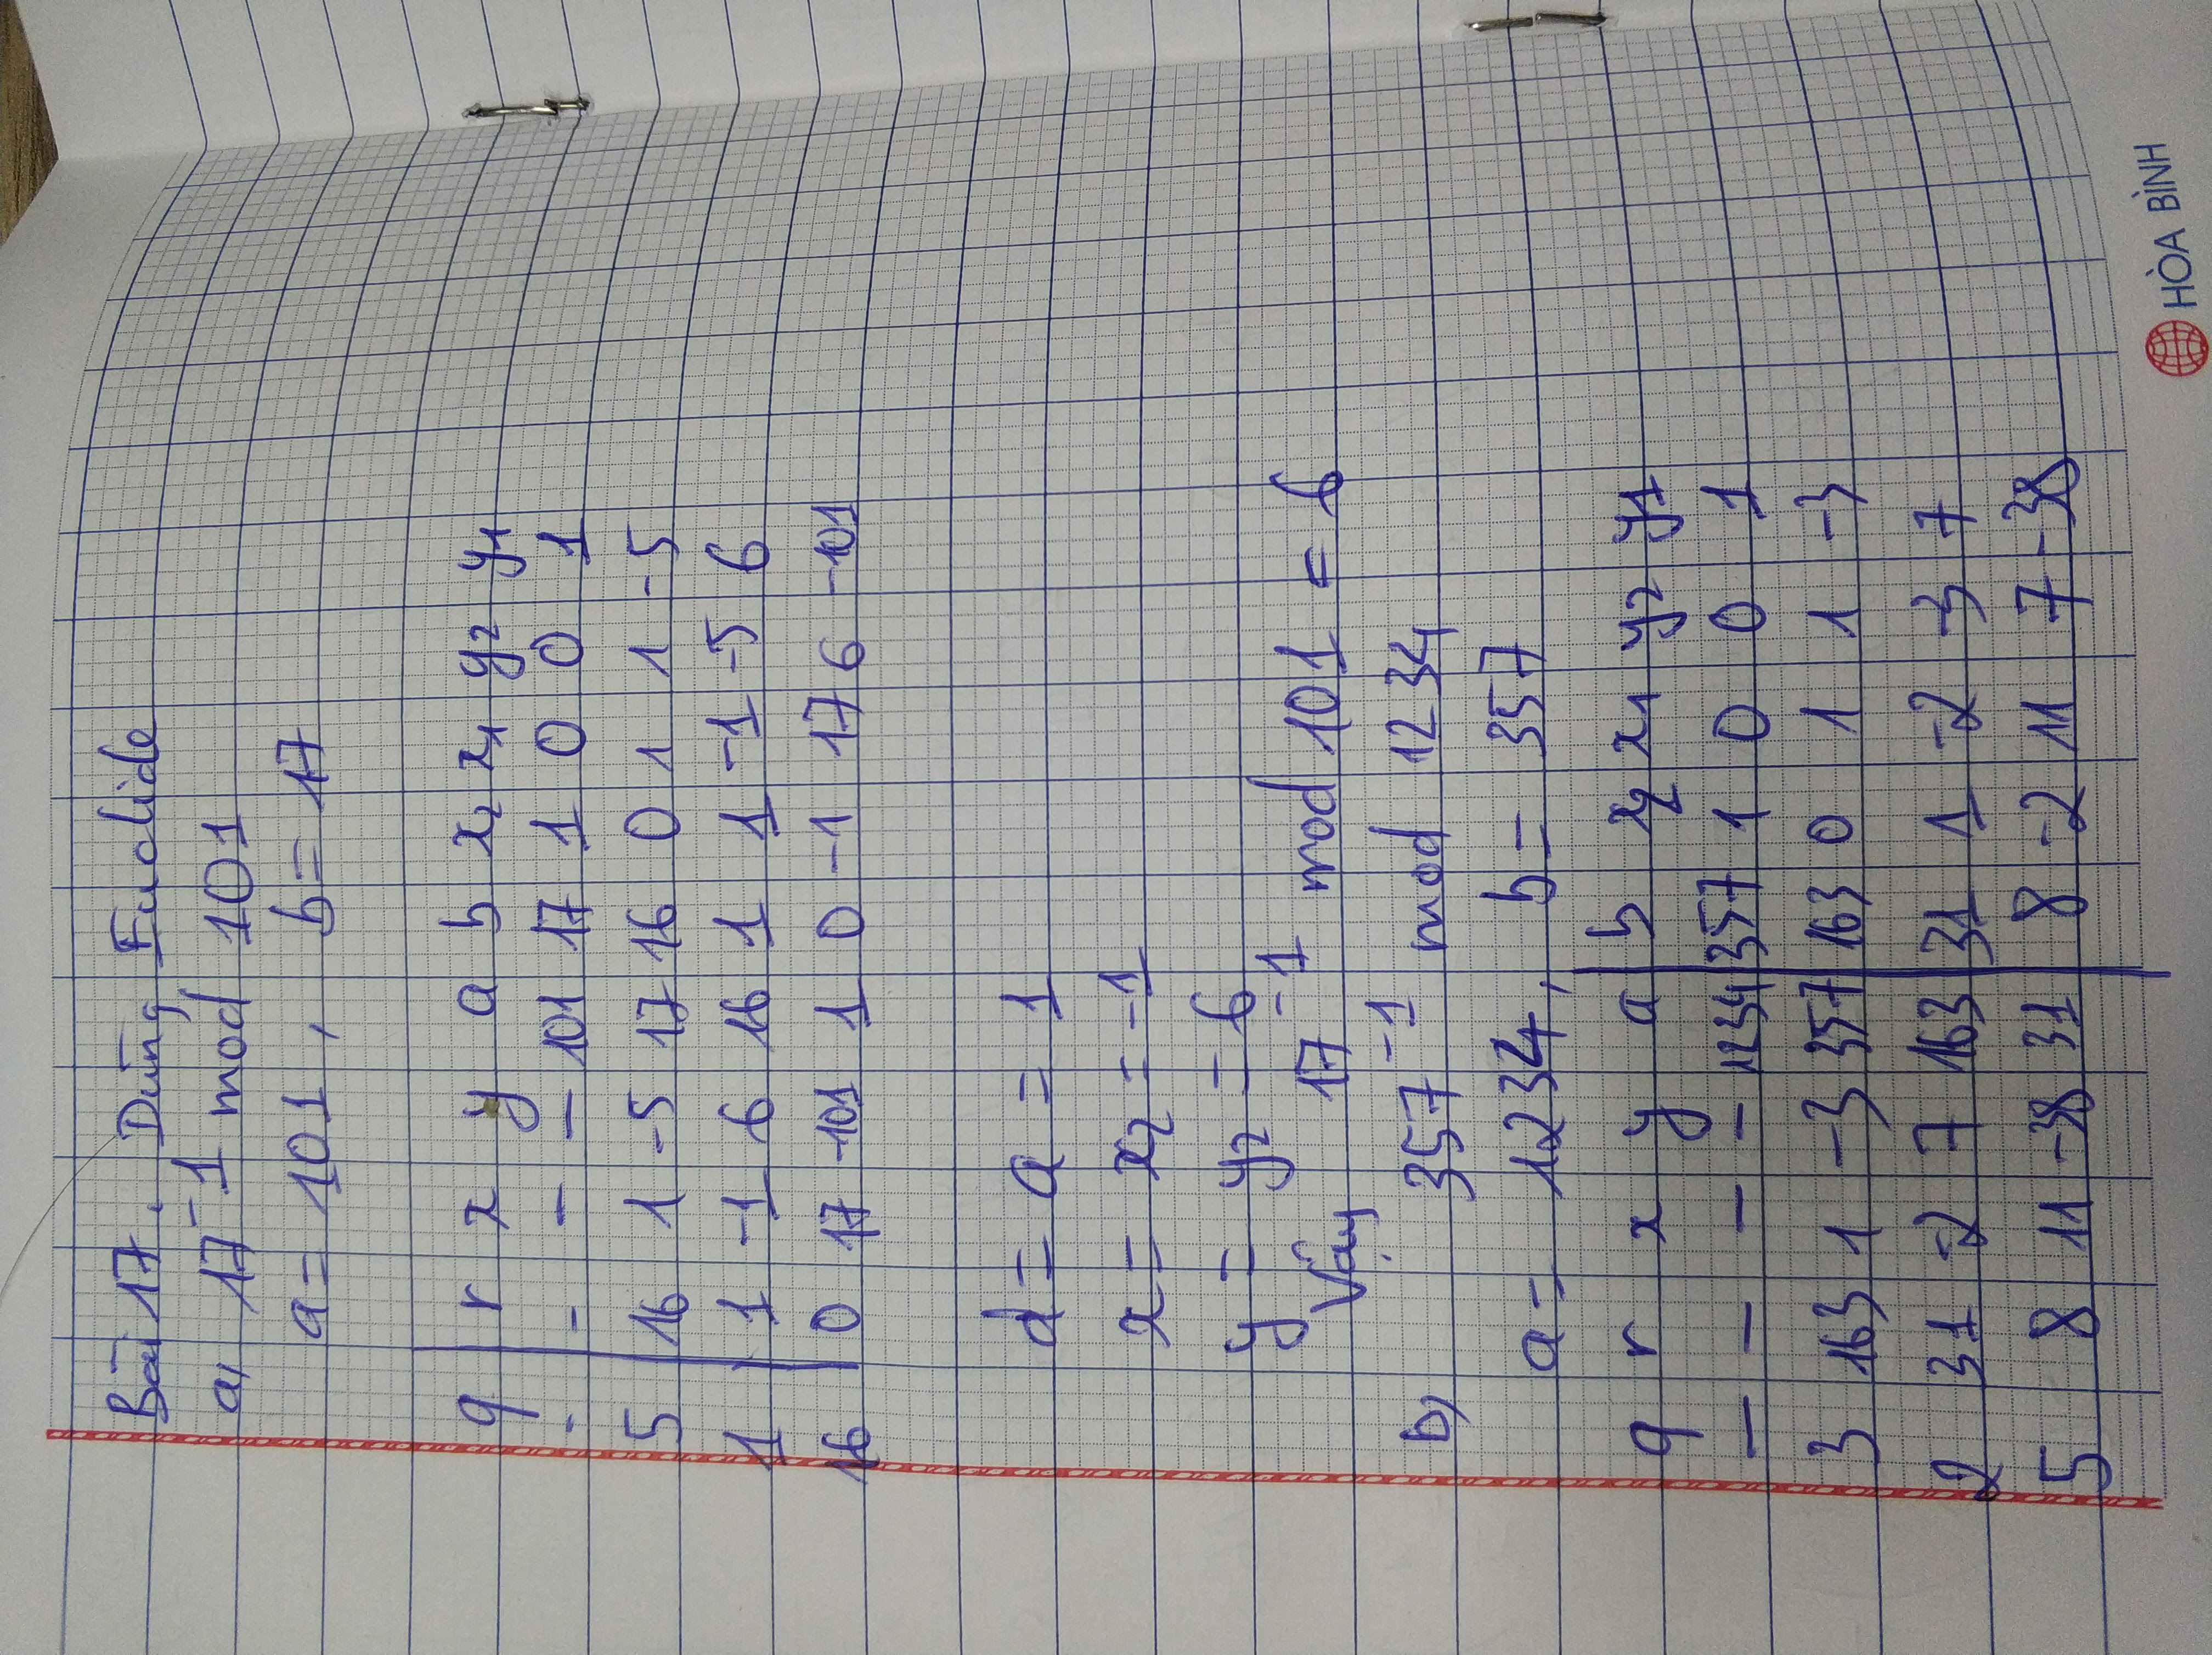 Bài 17. Dùng Euclide
a, 17⁻¹ mod 101
a = 101, b = 17
q r x y a b x₂ x₁ y₂ y₁
- - - - 101 17 1 0 0 1
5 16 1 -5 17 16 0 1 1 -5
1 1 -1 6 16 1 1 -1 -5 6
16 0 17 -101 1 0 -1 17 6 -101
d = a = 1
x = x₂ = -1
y = y₂ = 6
Vậy 17⁻¹ mod 101 = 6
b, 357⁻¹ mod 1234
a = 1234, b = 357
q r x y a b x₂ x₁ y₂ y1
- - - - 1234 357 1 0 0 1
3 163 1 -3 357 163 0 1 1 -3
2 31 -2 7 163 31 1 -2 -3 7
5 8 11 -38 31 8 -2 11 7 -38
HÒA BÌNH